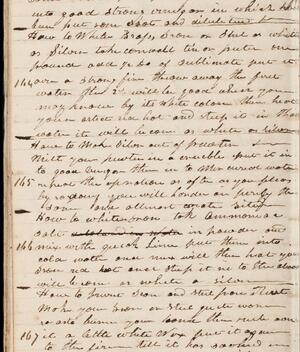 into good strong vinegar in which has
been put some Soot and
How to White Brass Iron or Steel as white
as Silver take cornwall tin or puter one
pound add ye 60 of sublimate put it
164 over a strong fire throw away the first
water the 2d will be good when you
may know by its white colour then heat
your artiest red hot and steep it in that
water it will become as white as silver
How to Mak Silver out of pewter
Milt your pewter in a crucible put it in
to good vinegar then in to Mercurial water
165 repeat the operation as often as you please
by so doing you will harden and purify the
into allmost Silver
How to whiten Iron tak Ammoniac
Salt in powder and
166 mix with quick Lime put them into
cold water once mix well then heat your
Iron red hot once steep it in to the above
will becom as white as silver
How to prevent Iron and steel from Rust
Mak your Iron or steel quite warm
so as to burn your hand then rub
167 it a little white Wax put it again
to the fire till it has soacked in